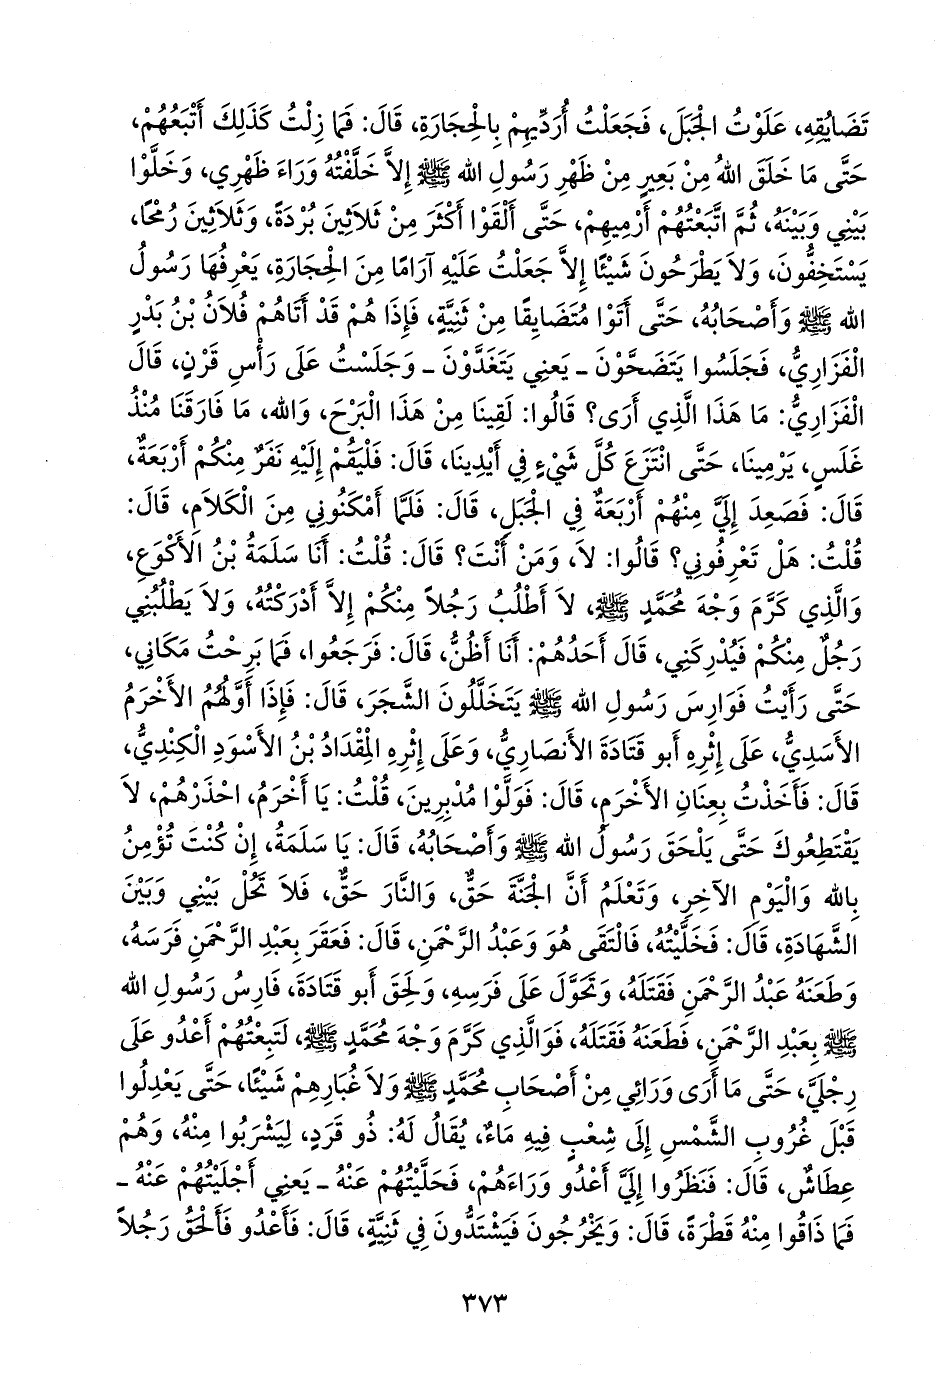 تَضَايُقِهِ، عَلَوْتُ الْجَبَلَ، فَجَعَلْتُ أُرَدِّيهِمْ بِالْحِجَارَةِ، قَالَ: فَمَا زِلْتُ كَذَلِكَ أَتْبَعُهُمْ،
حَتَّى مَا خَلَقَ اللهُ مِنْ بَعِيرٍ مِنْ ظَهْرِ رَسُولِ الله ﷺ إِلاَّ خَلَّفْتُهُ وَرَاءَ ظَهْرِي، وَخَلَّوْا
بَيْنِي وَبَيْنَهُ، ثُمَّ اتَّبَعْتُهُمْ أَرْمِيهِمْ، حَتَّى أَلْقَوْا أَكْثَرَ مِنْ ثَلاَثِينَ بُرْدَةً، وَثَلاَثِينَ رُمْحًا،
يَسْتَخِفُّونَ، وَلاَ يَطْرَحُونَ شَيْئًا إِلاَّ جَعَلْتُ عَلَيْهِ آرَامًا مِنَ الْحِجَارَةِ، يَعْرِفُهَا رَسُولُ
الله ﷺ وَأَصْحَابُهُ، حَتَّى أَتَوْا مُتَضَايِقًا مِنْ ثَنِيَّةٍ، فَإِذَا هُمْ قَدْ أَتَاهُمْ فُلاَنُ بْنُ بَدْرٍ
الْفَزَارِيُّ، فَجَلَسُوا يَتَضَحَّوْنَ ـ يَعنِي يَتَغَدَّوْنَ ـ وَجَلَسْتُ عَلَى رَأْسِ قَرْنٍ، قَالَ
الْفَزَارِيُّ: مَا هَذَا الَّذِي أَرَى؟ قَالُوا: لَقِينَا مِنْ هَذَا الْبَرْحَ، وَالله، مَا فَارَقَنَا مُنْذُ
غَلَسٍ، يَرْمِينَا، حَتَّى انْتَزَعَ كُلَّ شَيْءٍ فِي أَيْدِينَا، قَالَ: فَلْيَقُمْ إِلَيْهِ نَفَرٌ مِنْكُمْ أَرْبَعَةٌ،
قَالَ: فَصَعِدَ إِلَيَّ مِنْهُمْ أَرْبَعَةٌ فِي الْجَبَلِ، قَالَ: فَلَمَّا أَمْكَنُونِي مِنَ الْكَلاَمِ، قَالَ:
قُلْتُ: هَلْ تَعْرِفُونِي؟ قَالُوا: لاَ، وَمَنْ أَنْتَ؟ قَالَ: قُلْتُ: أَنَا سَلَمَةُ بْنُ الأَكْوَعِ،
وَالَّذِي كَرَّمَ وَجْهَ مُحَمَّدٍ ﷺ، لاَ أَطْلُبُ رَجُلاً مِنْكُمْ إِلاَّ أَدْرَكْتُهُ، وَلاَ يَطْلُبُنِي
رَجُلٌ مِنْكُمْ فَيُدْرِكَنِي، قَالَ أَحَدُهُمْ: أَنَا أَظُنُّ، قَالَ: فَرَجَعُوا، فَمَا بَرِحْتُ مَكَانِي،
حَتَّى رَأَيْتُ فَوَارِسَ رَسُولِ الله ﷺ يَتَخَلَّلُونَ الشَّجَرَ، قَالَ: فَإِذَا أَوَّلُهُمُ الأَخْرَمُ
الأَسَدِيُّ، عَلَى إِثْرِهِ أَبو قَتَادَةَ الأَنصَارِيُّ، وَعَلَى إِثْرِهِ الْمِقْدَادُ بْنُ الأَسْوَدِ الْكِنْدِيُّ،
قَالَ: فَأَخَذْتُ بِعِنَانِ الأَخْرَمِ، قَالَ: فَوَلَّوْا مُدْبِرِينَ، قُلْتُ: يَا أَخْرَمُ، احْذَرْهُمْ، لاَ
يَقْتَطِعُوكَ حَتَّى يَلْحَقَ رَسُولُ الله ﷺ وَأَصْحَابُهُ، قَالَ: يَا سَلَمَةُ، إِنْ كُنْتَ تُؤْمِنُ
بِالله وَالْيَوْمِ الآخِرِ، وَتَعْلَمُ أَنَّ الْجَنَّةَ حَقٌّ، وَالنَّارَ حَقٌّ، فَلاَ تَحُلْ بَيْنِي وَبَيْنَ
الشَّهَادَةِ، قَالَ: فَخَلَّيْتُهُ، فَالْتَقَى هُوَ وَعَبْدُ الرَّحْمَنِ، قَالَ: فَعَقَرَ بِعَبْدِ الرَّحْمَنِ فَرَسَهُ،
وَطَعَنَهُ عَبْدُ الرَّحْمَنِ فَقَتَلَهُ، وَتَحَوَّلَ عَلَى فَرَسِهِ، وَلَحِقَ أَبو قَتَادَةَ، فَارِسُ رَسُولِ الله
ﷺ بِعَبْدِ الرَّحْمَنِ، فَطَعَنَهُ فَقَتَلَهُ، فَوَالَّذِي كَرَّمَ وَجْهَ مُحَمَّدٍ ﷺ، لَتَبِعْتُهُمْ أَعْدُو عَلَى
رِجْلَيَّ، حَتَّى مَا أَرَى وَرَائِي مِنْ أَصْحَابِ مُحَمَّدٍ ﷺ وَلاَ غُبَارِهِمْ شَيْئًا، حَتَّى يَعْدِلُوا
قَبْلَ غُرُوبِ الشَّمْسِ إِلَى شِعْبٍ فِيهِ مَاءٌ، يُقَالُ لَهُ: ذُو قَرَدٍ، لِيَشْرَبُوا مِنْهُ، وَهُمْ
عِطَاشٌ، قَالَ: فَنَظَرُوا إِلَيَّ أَعْدُو وَرَاءَهُمْ، فَحَلَّيْتُهُمْ عَنْهُ ـ يَعنِي أَجْلَيْتُهُمْ عَنْهُ ـ
فَمَا ذَاقُوا مِنْهُ قَطْرَةً، قَالَ: وَيَخْرُجُونَ فَيَشْتَدُّونَ فِي ثَنِيَّةٍ، قَالَ: فَأَعْدُو فَأَلْحَقُ رَجُلاً
٣٧٣